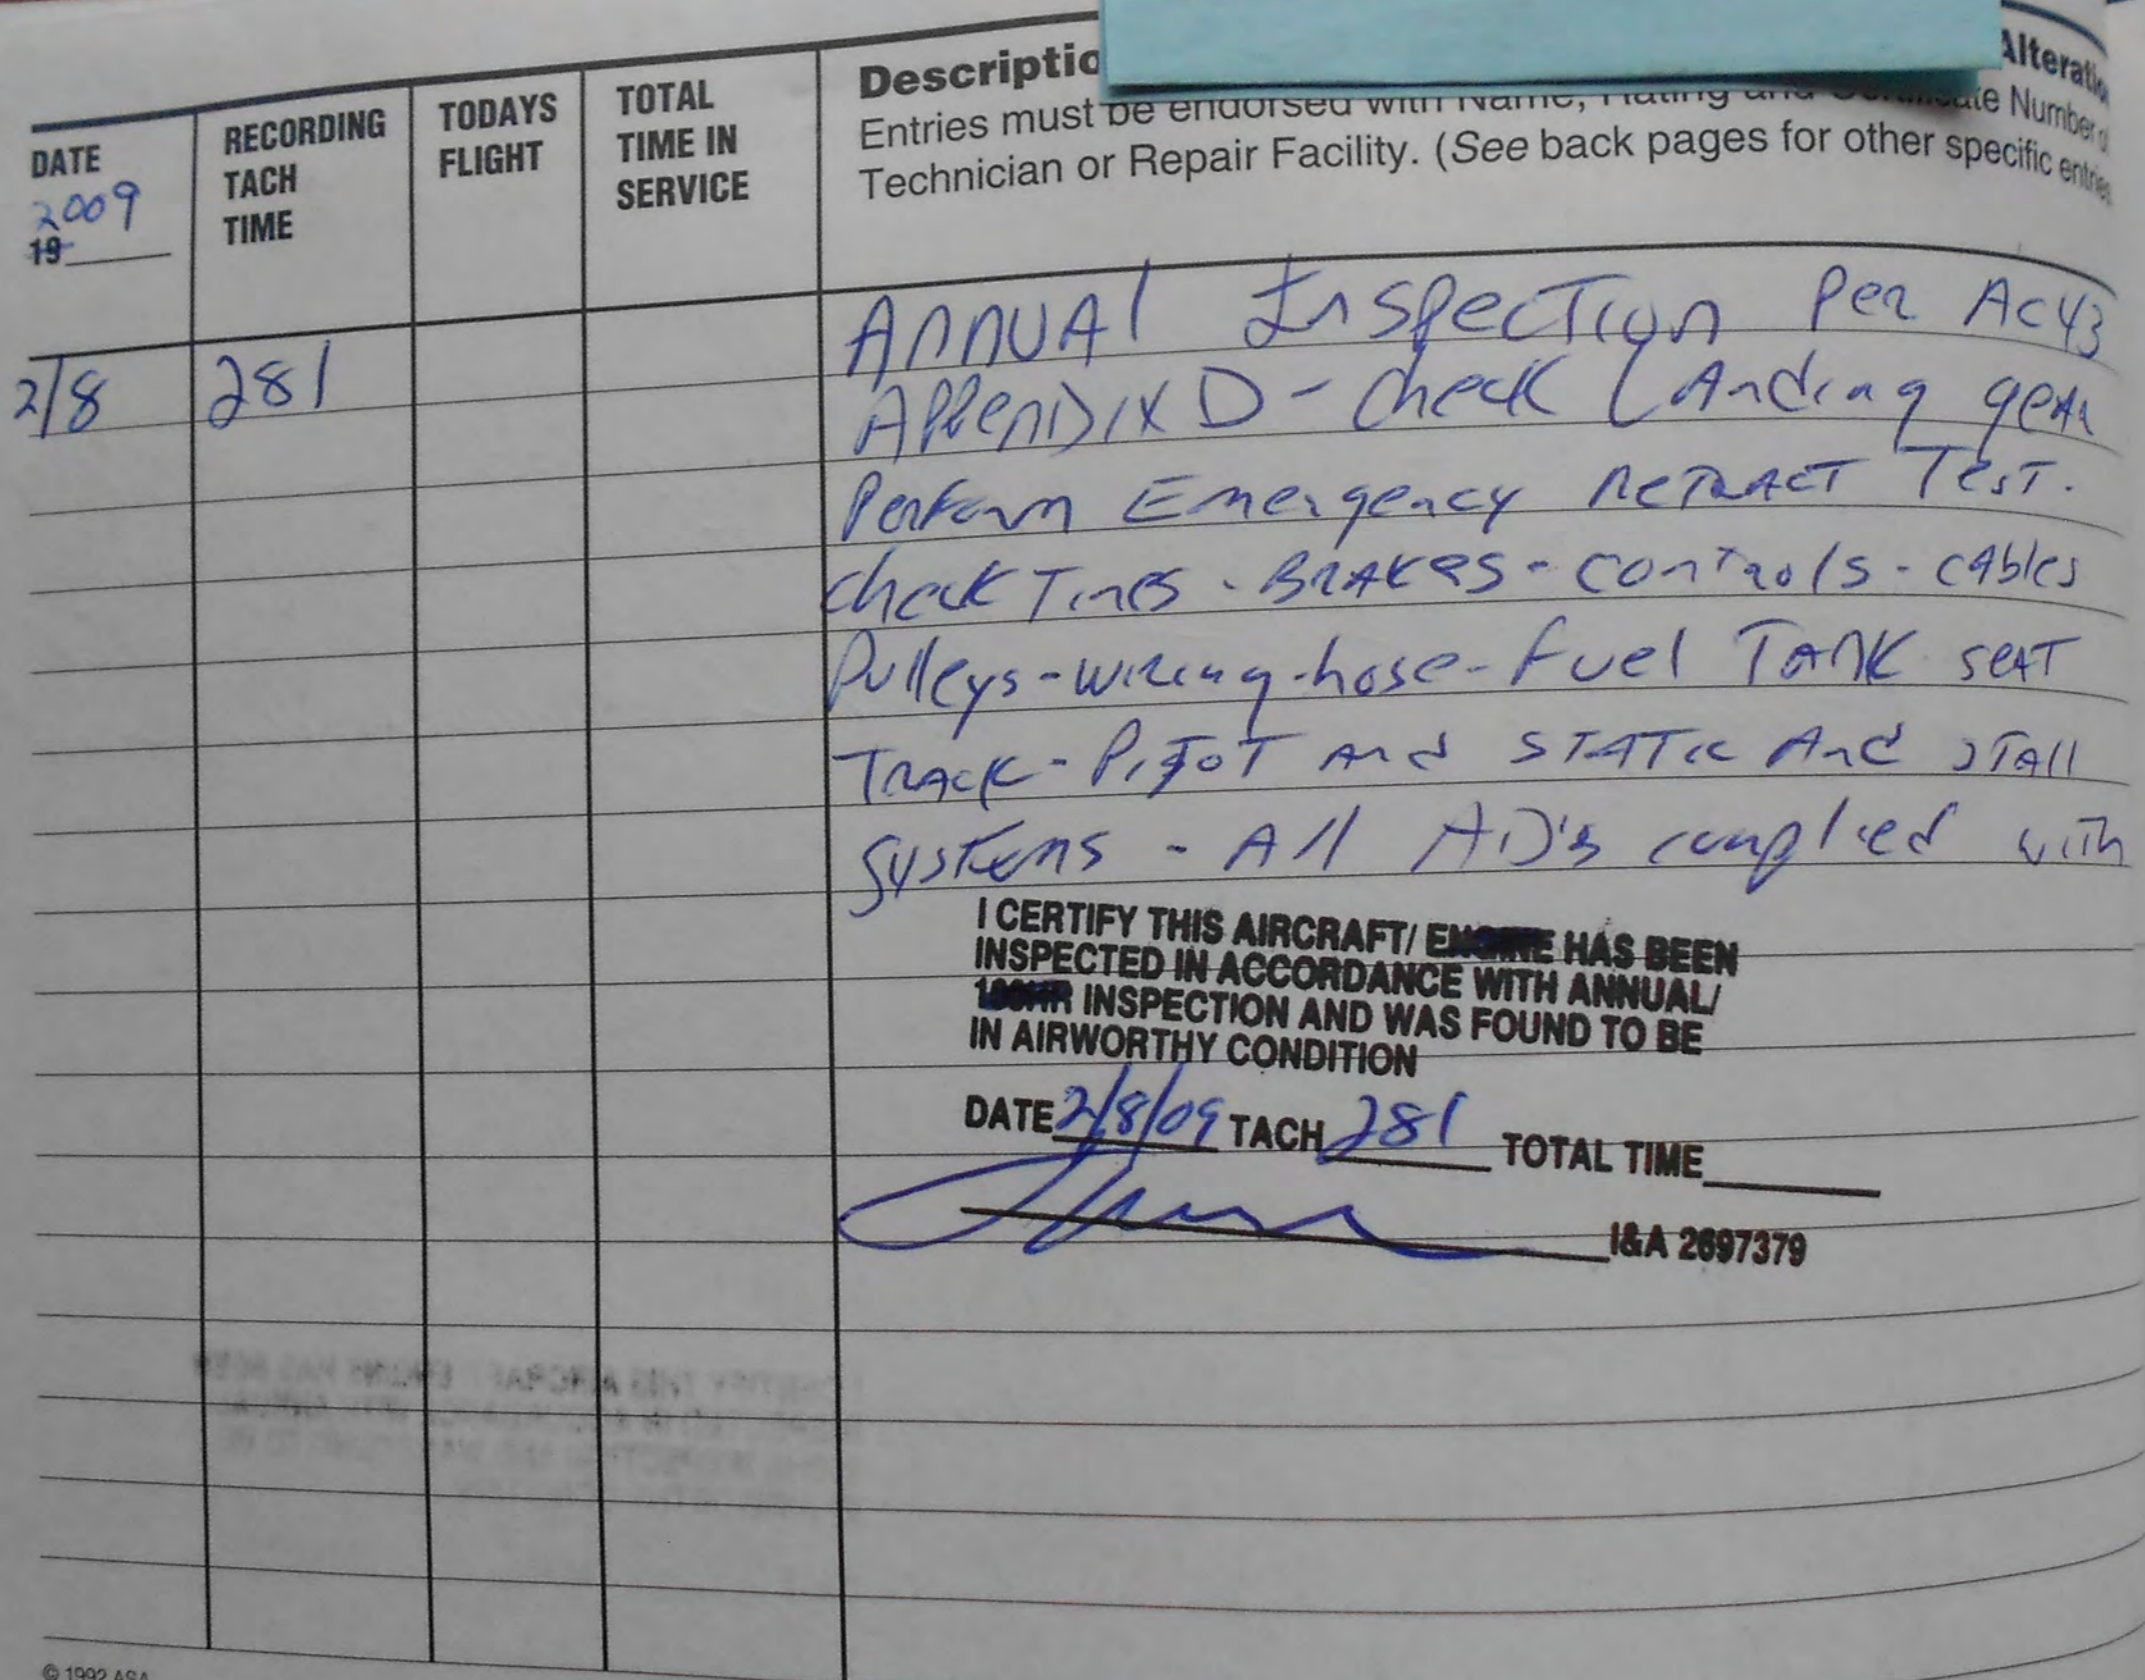 DATE
2009
19
RECORDING
TACH
TIME
TODAYS
FLIGHT
TOTAL
TIME IN
SERVICE
Entries must be endorsed with Name, Rating and Number
Technician or Repair Facility. (See back pages for other specific
2/8
281
Annual Inspection Per AC43
Appendix D - Check Landing gear
Perform Emergency Retract Test.
Check Tires - Brakes - Controls - Cables
Pulleys - wiring - hose - Fuel Tank seat
Track - Pitot and Static And stall
Systems - All AD's complied with
I CERTIFY THIS AIRCRAFT/ ENGINE HAS BEEN
INSPECTED IN ACCORDANCE WITH ANNUAL/
100HR INSPECTION AND WAS FOUND TO BE
IN AIRWORTHY CONDITION
DATE 2/8/09 TACH 281 TOTAL TIME
I&A 2697379
© 1992 ASA